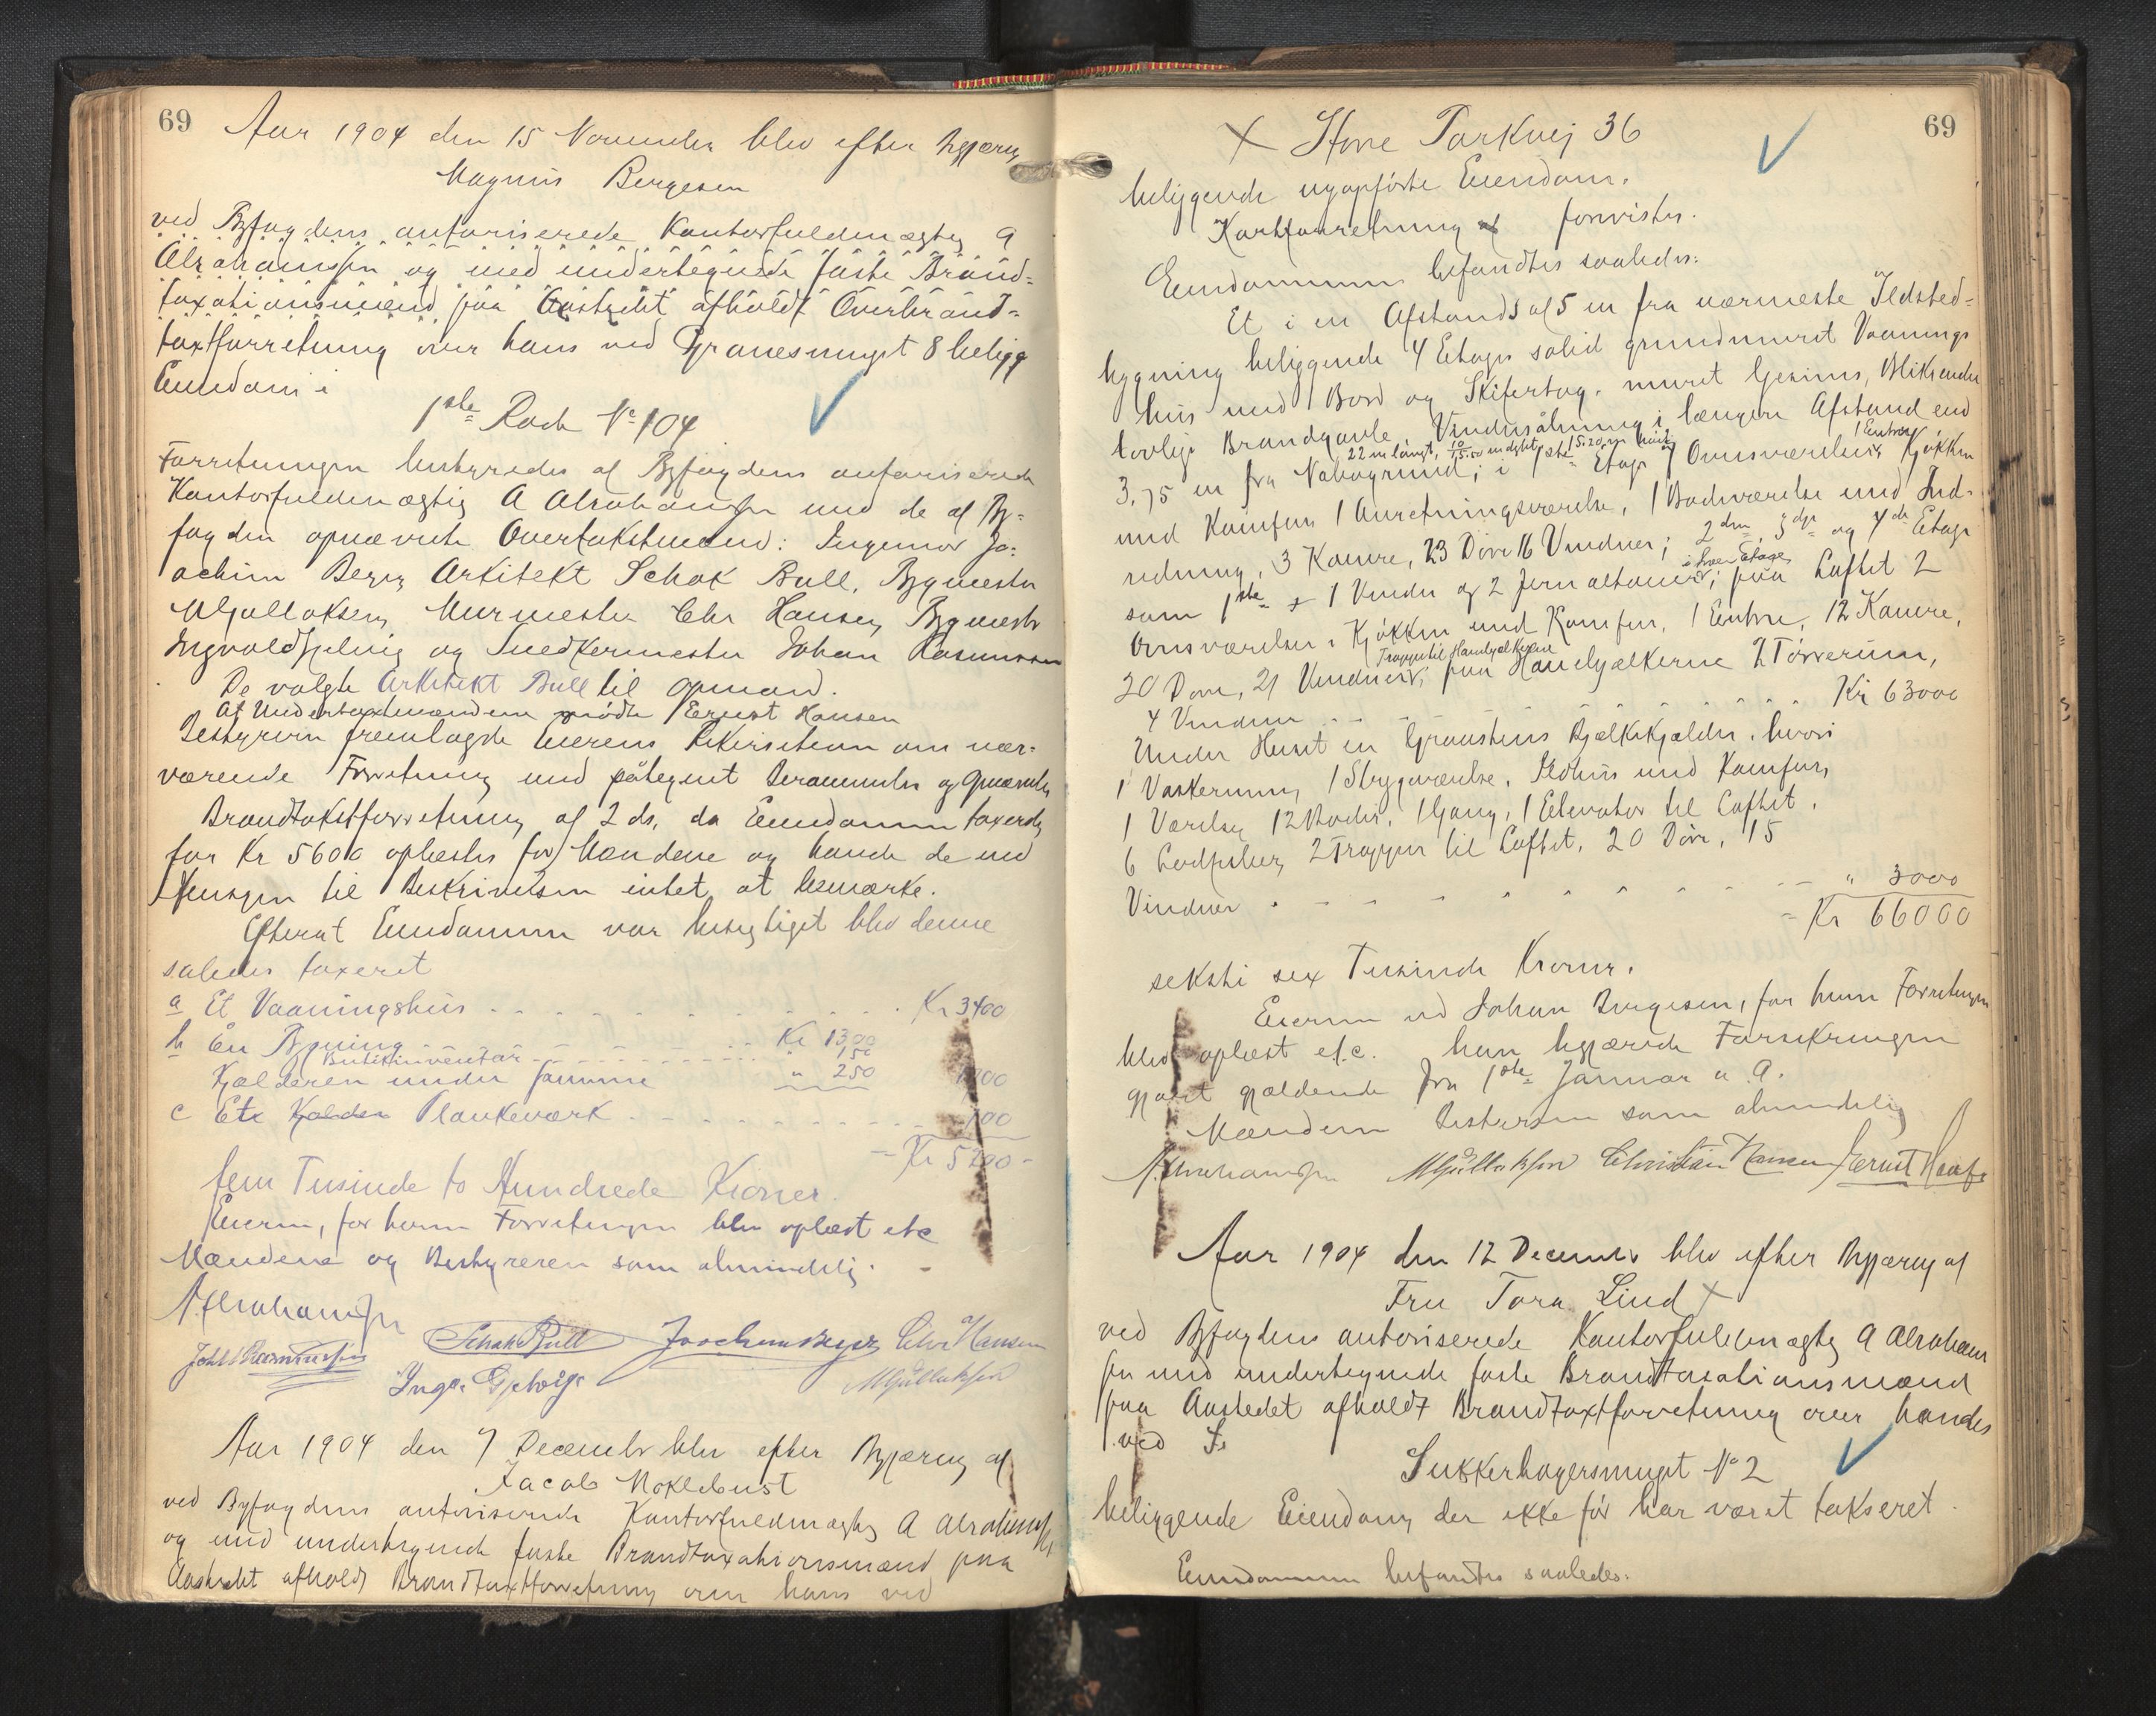 69 Aar 1904 den 15 November blev efter Begjæring
Magnus Bergesen
ved Byfogdens autoriserede Kontorfuldmægtig A
Abrahamssen og med undertegnede faste Brand=
taxationsmænd paa Aastedet afholdt Overbrand=
taxtforretning over hans ved Granesmuget 8 beligg
Eiendom i
1ste Rode No 104
Forretningen bestyredes af Byfogdens autoriserede
Kontorfuldmægtig A Abrahamssen med de af By=
fogden opnævnte Overtakstmænd: Ingeniør Jo=
achim Berg, Arkitekt Schak Bull, Bygmester
M Gullaksen, Murmester Chr Hansen, Bygmester
Ingvald Gjelvig og Snedkermester Johan Rasmussen
De valgte Arkitekt Bull til Opmand.
Af Undertaxtmændene mødte Ernst Hansen
Bestyreren fremlagde Eierens Rekvisition om nær=
værende Forretning med påtegnet Berammelse og Opnævnelse
Brandtakstforretning af 2 ds, da Eiendommen taxeredes
for Kr 5600 oplæstes for Mændene og havde de ved
til Beskrivelsen intet at bemærke.
Efterat Eiendommen var besigtiget blev denne
saaledes taxeret
a Et Vaaningshus . . . . Kr 3400
b En Bygning . . . Kr 1300
Butikinventar . . . " 150
Kjælderen under samme " 250 1700
c Et Kjælder Plankeværk . . . . 100
= Kr 5200 -
fem Tusinde to Hundrede Kroner.
Eieren, for hvem Forretningen blev oplæst etc
Mændene og Bestyreren som almindelig.
A. Abrahamssen
Schak Bull Joachim Berg Chr Hansen
Joh. Rasmussen Ingv. Gjelvig M Gullaksen
Aar 1904 den 7 December blev efter Begjæring af
Jacob Moklebust
ved Byfogdens autoriserede Kontorfuldmægtig A Abrahamssen
og med undertegnede faste Brandtaxationsmænd paa
Aastedet afholdt Brandtaxtforretning over hans ved
69
x Store Parkvej 36
beliggende nyopførte Eiendom.
Kartforretning forevistes.
Eiendommen befandtes saaledes:
Et i en Afstand af 5 m fra nærmeste Ildsted=
bygning beliggende 4 Etages solid grundmuret Vaanings
hus med Bord og Skifertag, muret Gesims, Blikrender
lovlige Brandgavle Vinduesåbning i længere Afstand end
22 m langt, 10/15.50 m dybt, 15.20 m høit 1 Entre
3,75 m fra Nabogrund; i 1ste Etage 7 Ovnsværelser, Kjøkken
med Komfur, 1 Anretningsværelse, 1 Badeværelse med Ind=
redning, 3 Kamre, 23 Døre 16 Vinduer; 2den, 3die og 4de Etage
som 1ste + 1 Vindu og 2 Jernaltaner i hver Etage; paa Loftet 2
Ovnsværelser, Kjøkken med Komfur, 1 Entre, 12 Kamre,
Trappe til Hanebjælkerne
20 Døre, 21 Vinduer; paa Hanebjælkerne 2 Tørrerum,
4 Vinduer . . . . Kr 63000
Under Huset en Graastens Bjælkekjælder, hvori
1 Vaskerum, 1 Strygeværelse, Ildhus med Komfur,
1 Værelse, 12 Boder, 1 Gang, 1 Elevator til Loftet,
6 2 Trapper til Loftet, 20 Døre, 15
Vinduer . . . . " 3000
= Kr 66000
seksti sex Tusinde Kroner.
Eieren ved Johan Bergesen, for hvem Forretningen
blev oplæst etc. han begjærede Forsikringen
gjort gjældende fra 1ste Januar n. A.
Mændene Bestyreren som almindelig
A. Abrahamssen M Gullaksen Christian Hansen Ernst Hansen
Aar 1904 den 12 December blev efter Begjæring af
Fru Tora Lind x
ved Byfogdens autoriserede Kontorfuldmægtig A Abraham
sen med undertegnede faste Brandtaxationsmænd
paa Aastedet afholdt Brandtaxtforretning over hendes
ved
Sukkerhagersmuget No 2
beliggende Eiendom, der ikke før har været takseret.
Eiendommen befandtes saaledes: